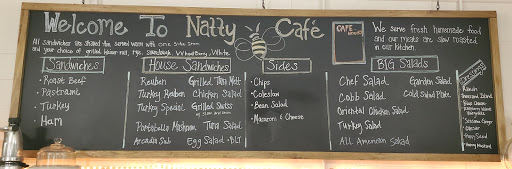 Welcome To Natty Café
All Sandwiches are sliced thin, served warm with one side item
and your choice of grilled Italian roll, rye, sourdough, Wheatberry, White
CAFE
We serve fresh homemade food
and our meats are slow roasted
in our kitchen.
Sandwiches
· Roast Beef
· Pastrami
· Turkey
· Ham
House Sandwiches
Reuben Grilled Tuna Melt
Turkey Reuben Chicken Salad
Turkey Special Grilled Swiss
Portobello Mushroom Tuna Salad
Arcadia Sub Egg Salad · BLT
Sides
· Chips
· Coleslaw
· Bean Salad
· Macaroni & Cheese
Big Salads
Chef Salad Garden Salad
Cobb Salad Cold Salad Plate
Oriental Chicken Salad
Turkey Salad
All American Salad
Dressings
Ranch
Thousand Island
Blue Cheese
Sesame Ginger
Caesar
Honey Mustard